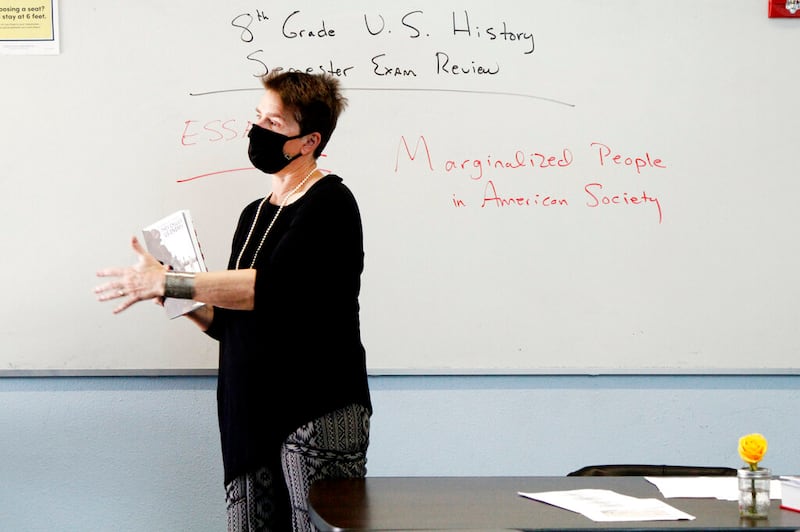 oosing a seat?
stay at 6 feet.
8th Grade U.S. History
Semester Exam Review
Marginalized People
in American Society